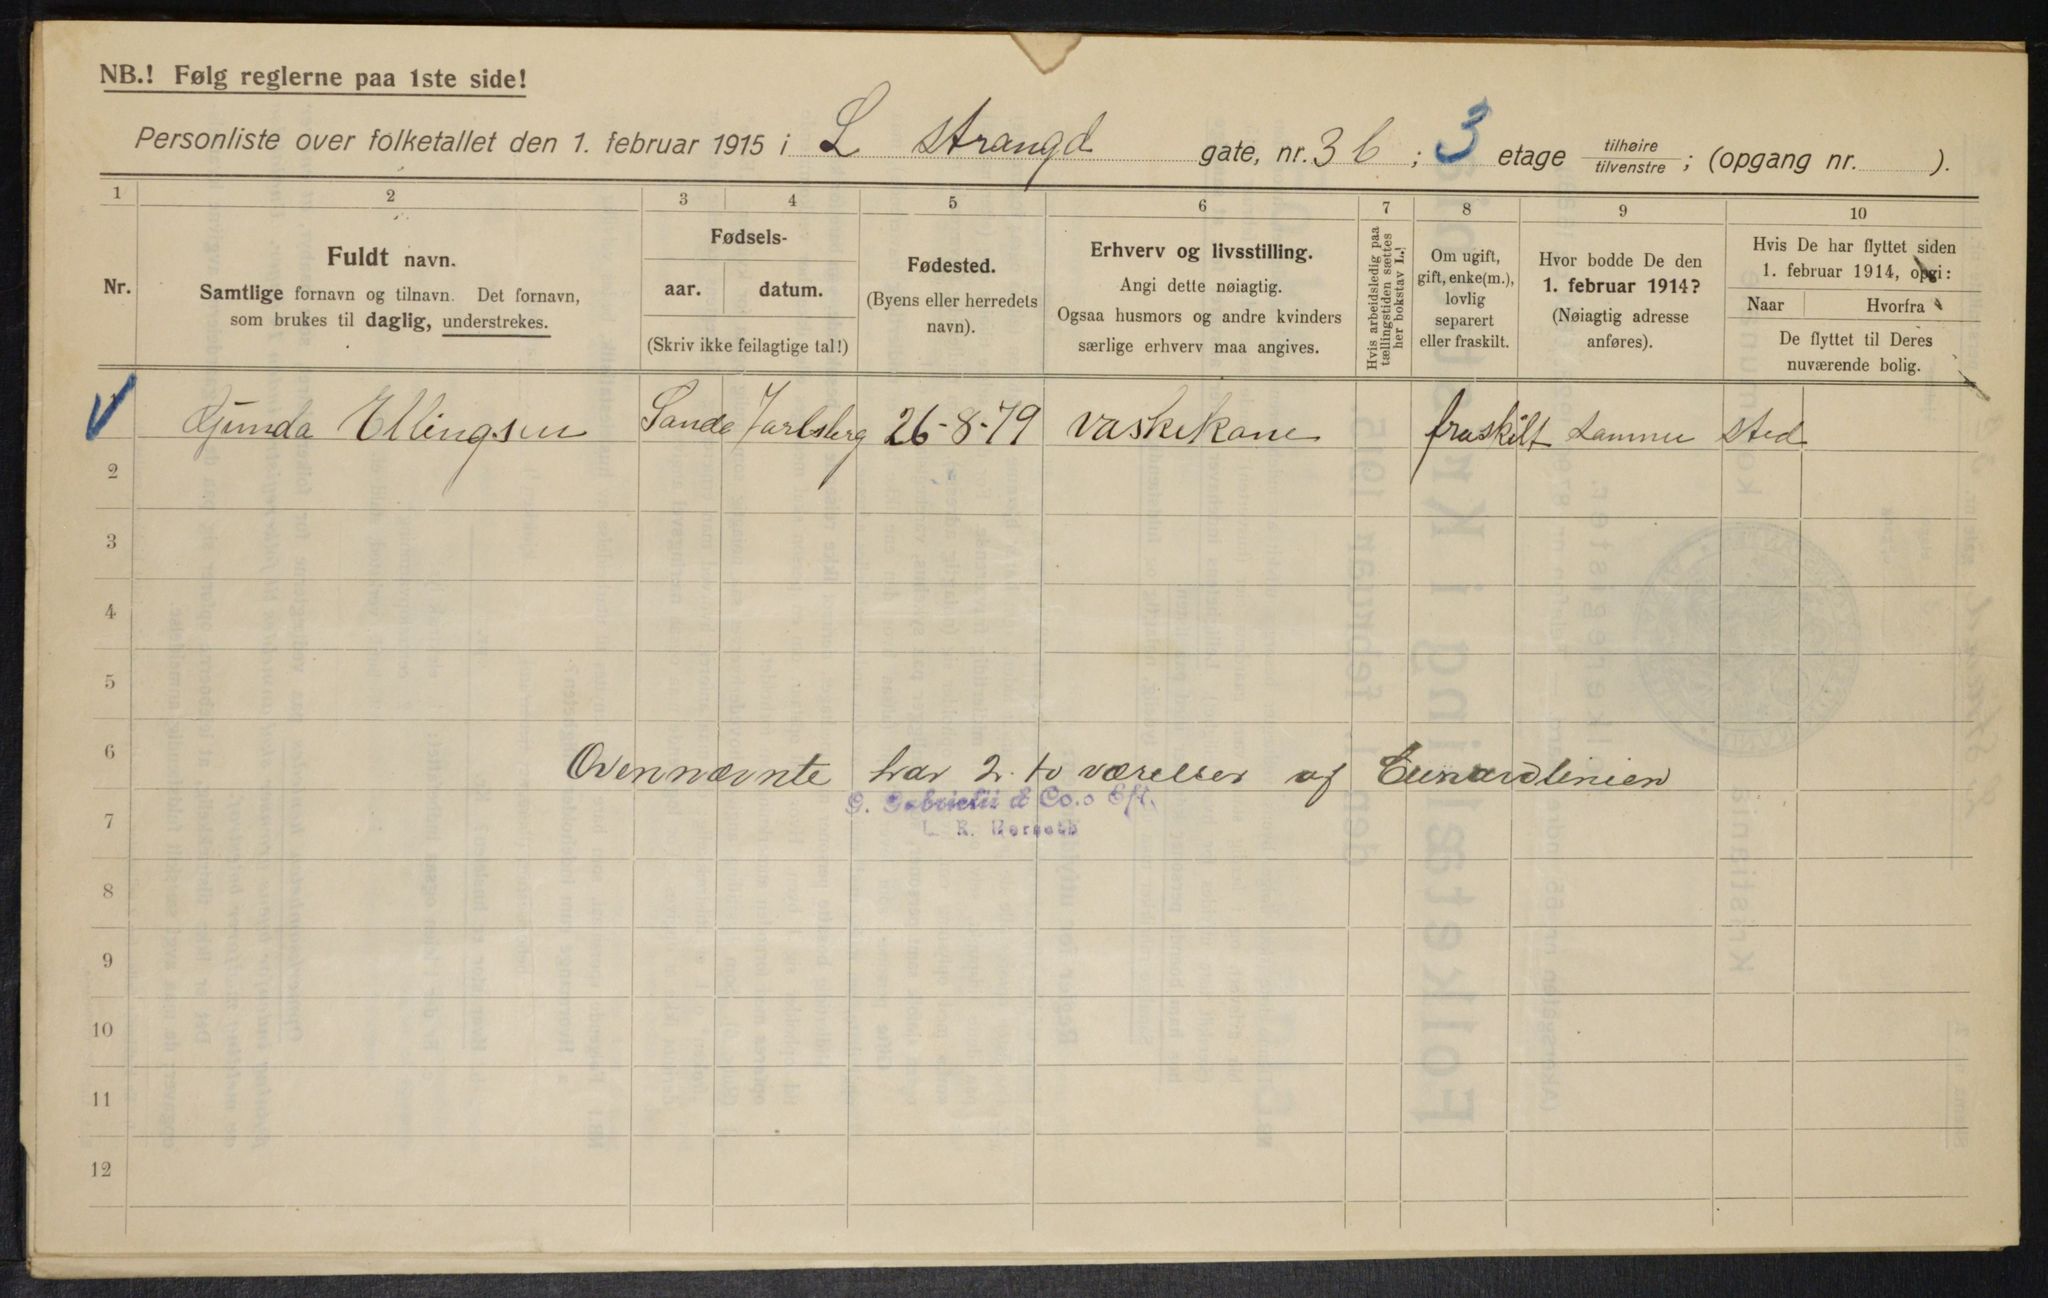 NB.! Følg reglerne paa 1ste side!
Personliste over folketallet den 1. februar 1915 i L Strangd gate, nr. 3 b ; 3 etage tilhøire tilvenstre ; (opgang nr. ).
1 2 3 4 5 6 7 8 9 10
Nr.
Fuldt navn.
Samtlige fornavn og tilnavn. Det fornavn,
som brukes til daglig, understrekes.
Fødsels-
aar. datum.
(Skriv ikke feilagtige tal!)
Fødested.
(Byens eller herredets
navn).
Erhverv og livsstilling.
Angi dette nøiagtig.
Ogsaa husmors og andre kvinders
særlige erhverv maa angives.
Hvis arbeidsledig paa
tællingstiden sættes
her bokstav L.!
Om ugift,
gift, enke(m.),
lovlig
separert
eller fraskilt.
Hvor bodde De den
1. februar 1914?
(Nøiagtig adresse
anføres).
Hvis De har flyttet siden
1. februar 1914, opgi:
Naar Hvorfra
De flyttet til Deres
nuværende bolig.
Gunda Ellingsen Sande Jarlsberg 26-8-79 vaskekone fraskilt samme sted
2
3
4
5
6 Ovennævnte har 2. to værelser af Cunardlinien
G. Gabrielii & Co.s Eft.
7
8
9
10
11
12